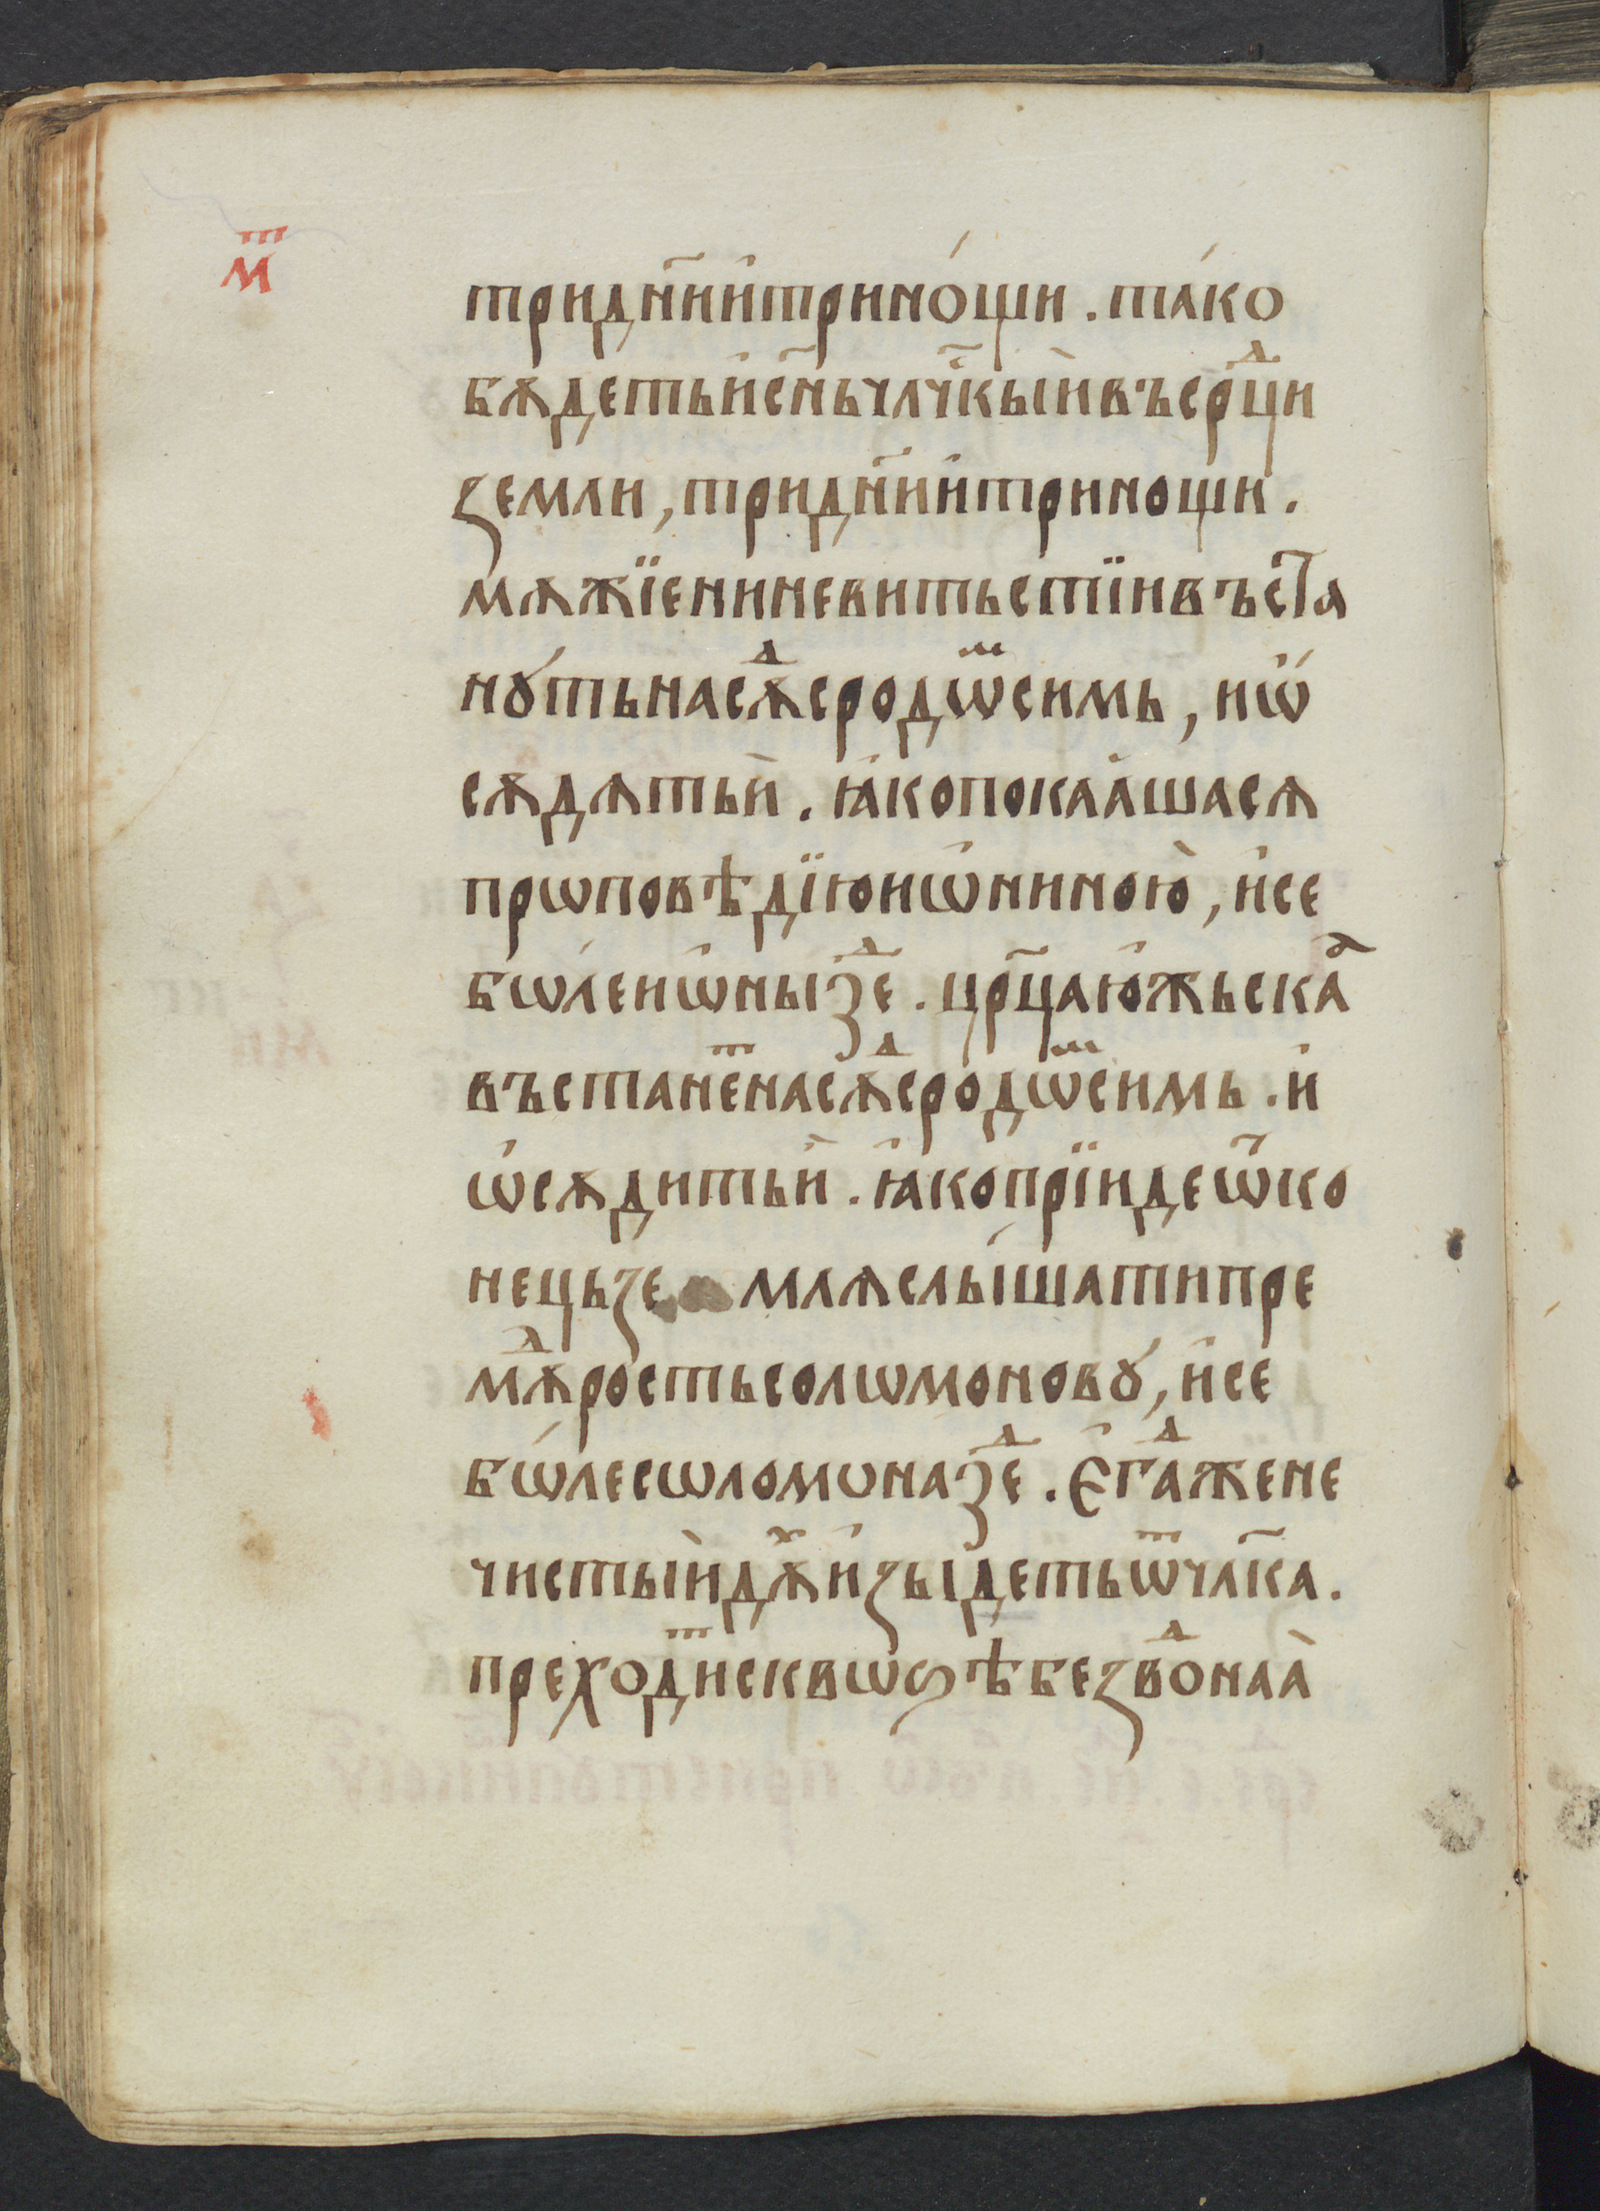 м҃т
тридн҃їи҆трино́щи . та́ко
бѫдетьи҆сн҃ьчлч҃кыи҆въсрⷣци
земли , тридн҃їи҆тринощи .
мѫжїениневитьстїивъст҃а
нꙋ́тьнасѫⷣсродѿсимь , и҆ѡ҆́
сѫдѧтьи҆ . ꙗ҆копокаа҆шасѧ
прѡповѣдїюиѡ҆ниною̀ , и҆се
бѡ́леиѡ҆ныⷥе . цр҃цаю҆жьскаа
въстанеⷮнасѫⷣсродѿсимь . и҆
ѡ҆сѫдитьи҆ . ꙗ҆копрїидеѿко
нецьземлѧслы́шатипре
мѫⷣростьсолѡмоновꙋ́ , и҆се
бѡ́лесѡломоназⷣе . Є҆гаⷣжене
чистыи҆дх҃ѫи҆зыдетьѿчл҃ка .
преходиⷮсквѡѕѣбезвоⷣнаа̀